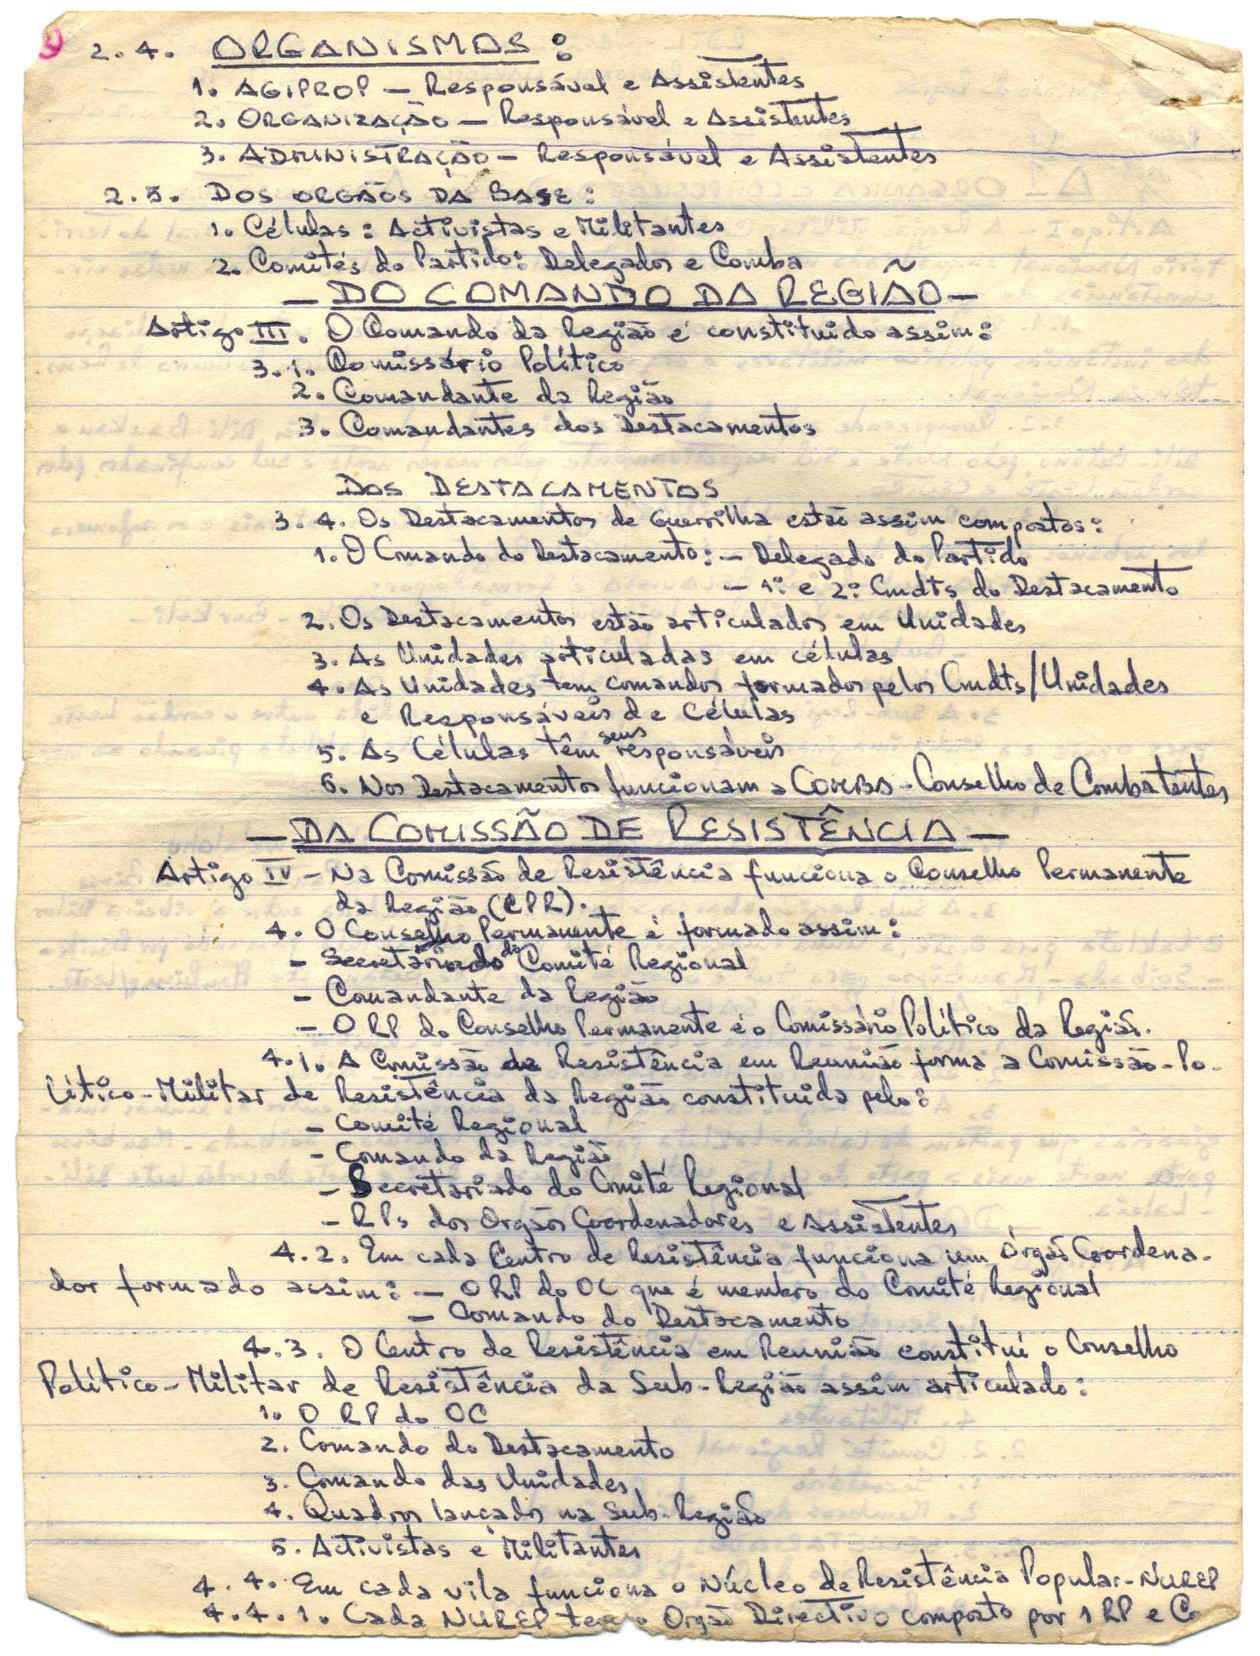 2.4. ORGANISMOS:
1. AGIPROP – Responsável e Assistentes
2. ORGANIZAÇÃO – Responsável e Assistentes
3. ADMINISTRAÇÃO – Responsável e Assistentes
2.5. DOS ORGÃOS DA BASE:
1. Células: Activistas e Militantes
2. Comités do Partido: Delegados e Comba
– DO COMANDO DA REGIÃO –
Artigo III. O Comando da Região é constituido assim:
3.1. Comissário Político
2. Comandante da Região
3. Comandantes dos Destacamentos
DOS DESTACAMENTOS
3.4. Os Destacamentos de Guerrilha estão assim compostos:
1. O Cmando do Destacamento: – Delegado do Partido
– 1º e 2º Cmdts do Destacamento
2. Os Destacamentos estão articulados em Unidades
3. As Unidades articuladas em células
4. As Unidades tem comandos formados pelos Cmdts/Unidades
e Responsáveis de Células
5. As Células têm seus responsáveis
6. Nos Destacamentos funcionam a COMBA – Conselho de Combatentes
– DA COMISSÃO DE RESISTÊNCIA –
Artigo IV – Na Comissão de Resistência funciona o Conselho Permanente
da Região (CPR).
4. O Conselho Permanente é formado assim:
– Secretariado do Comité Regional
– Comandante da Região
– O RP do Conselho Permanente é o Comissário Político da Região.
4.1. A Comissão de Resistência em Reunião forma a Comissão-Po-
lítico-Militar de Resistência da Região constituida pelo:
– Comité Regional
– Comando da Região
– Secretariado do Cmité Regional
– RPs dos Orgãos Coordenadores e Assistentes
4.2. Em cada Centro de Resistência funciona um Órgão Coordena-
dor formado assim: – O RP do OC que é membro do Comité Regional
– Comando do Destacamento
4.3. O Centro de Resistência em Reunião constitui o Conselho
Político-Militar de Resistência da Sub-Região assim articulado:
1. O RP do OC
2. Comando do Destacamento
3. Cmando das Unidades
4. Quadros lançados na Sub-Região
5. Activistas e Militantes
4.4. Em cada vila funciona o Núcleo de Resistência Popular-NUREP
4.4.1. Cada NUREP tem o Orgão Directivo composto por 1 RP e